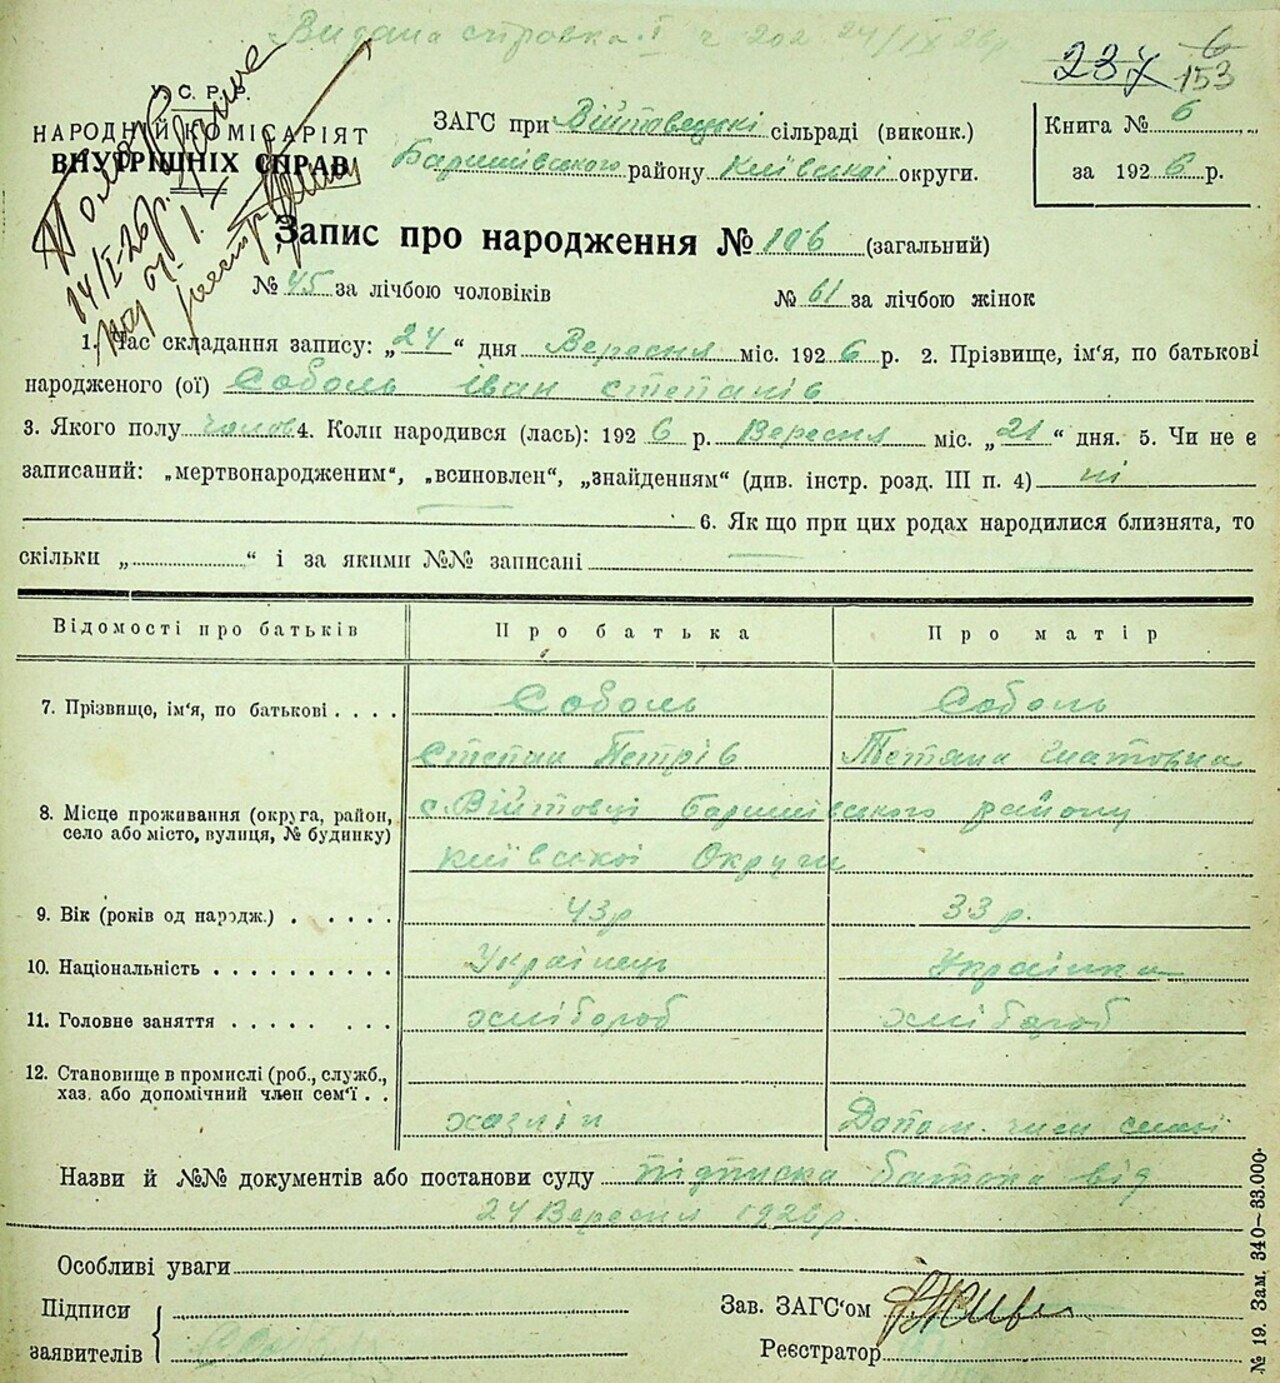 Видана справка I ч 202 24/IX 26р
237 6
153
У. С. Р. Р.
НАРОДНІЙ КОМІСАРІЯТ
ВНУТРІШНІХ СПРАВ
14/I-26р.
ЗАГС при Війтовецькі сільраді (виконк.)
Баришівського району Київської округи.
Книга № 6
за 1926 р.
Запис про народження № 106 (загальний)
№ 45 за лічбою чоловіків № 61 за лічбою жінок
1. Час складання запису: „24“ дня Вересня міс. 1926 р. 2. Прізвище, ім'я, по батькові
народженого (ої) Соболь Іван Степанів
3. Якого полу чолов 4. Коли народився (лась): 1926 р. Вересня міс. „21“ дня. 5. Чи не є
записаний: „мертвонародженим“, „всиновлен“, „знайденням“ (див. інстр. розд. III п. 4) ні
6. Як що при цих родах народилися близнята, то
скільки „ “ і за якими №№ записані
Відомості про батьків Про батька Про матір
7. Прізвище, ім'я, по батькові Соболь Соболь
Степан Петрів Тетяна
8. Місце проживання (округа, район, село або місто, вулиця, № будинку) с. Війтовці Баришівського району
Київської Округи
9. Вік (років од народж.) 43р 33 р.
10. Національність Українець Українка
11. Головне заняття хлібороб хлібороб
12. Становище в промислі (роб., служб.,
хаз. або допомічний член сем'ї хазяїн Допом. член семьї
Назви й №№ документів або постанови суду підписка батька від
24 Вересня 1926р.
Особливі уваги
Підписи
заявителів
Зав. ЗАГС'ом
Реєстратор
№ 19. Зам. 340—33.000.